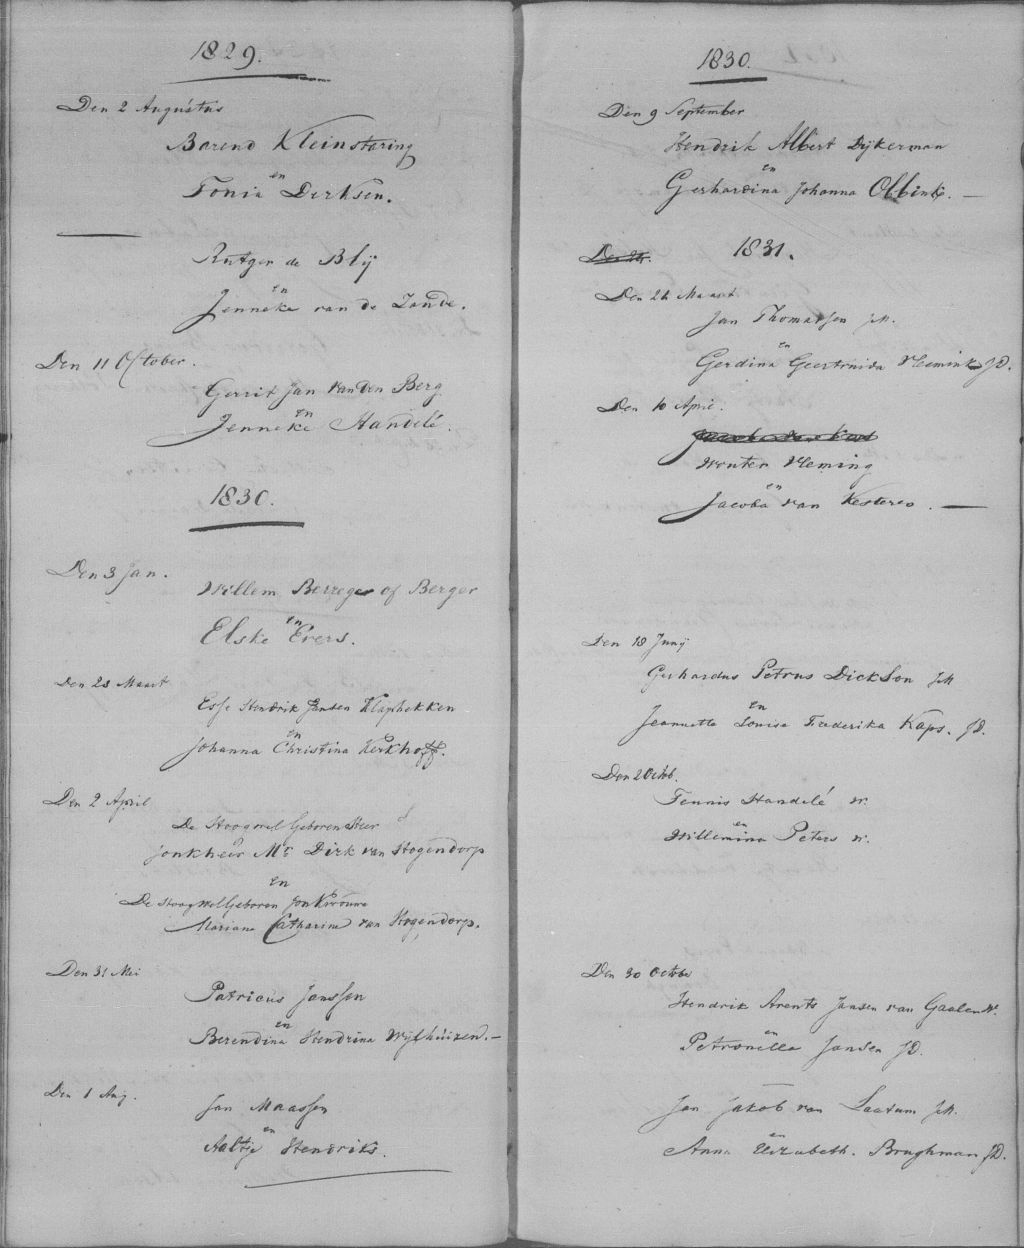 1829.
Den 2 Augustus
Barend Kleinstaring
en
Tonia Derksen.
Rutger de Blij
en
Jenneke van de Zande.
Den 11 October.
Gerrit Jan van den Berg
en
Jenneke Handelé.
1830.
Den 3 Jan.
Willem Berreger of Berger
en
Elske Evers.
Den 28 Maart
Esse Hendrik Jansen Klaphekken
en
Johanna Christina Kerkhoff.
Den 2 April
De HoogwelGeboren Heer
Jonkheer Mr Dirk van Hogendorp
En
De HoogWelGeboren Jonkvrouwe
Mariane Catharine van Hogendorp.
Den 31 Mei
Patricus Janssen
en
Berendina Hendrina Wijlhuizen.-
Den 1 Aug.
Jan Maassen
en
Aaltje Hendriks.
1830.
Den 9 September
Hendrik Albert Dijkerman
en
Gerhardina Johanna Olbink. -
1831.
Den 24 Maart.
Jan Thomassen J.M.
en
Gerdina Geertruida Vlemink J.D.
Den 10 April.
Wouter Vleming
en
Jacoba van Kesteren. -
Den 18 Junij
Gerhardus Petrus Dickson J.M
En
Jeannette Louise Frederika Kaps. J.D.
Den 2 Octob.
Teunis Handelé w.
en
Willemina Peters w.
Den 30 October
Hendrik Arents Jansen van Gaalen W.
en
Petronella Jansen J.D.
Jan Jakob van Laatum J.M.
en
Anna Elizabeth. Brughman J.D.